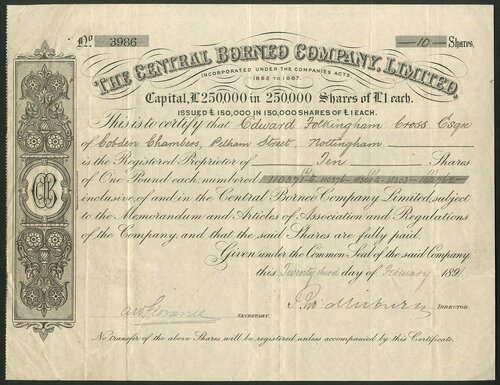 No. 3986 —10— Shares.
THE CENTRAL BORNEO COMPANY, LIMITED.
INCORPORATED UNDER THE COMPANIES ACTS
1862 TO 1887.
Capital, £250,000 in 250,000 Shares of £1 each.
ISSUED £150,000 IN 150,000 SHARES OF £1 EACH.
This is to certify that Edward Folkingham Cross Esqre
of Cobden Chambers, Pelham Street, Nottingham
is the Registered Proprietor of Ten Shares
of One Pound each, numbered
inclusive, of and in the Central Borneo Company, Limited, subject
to the Memorandum and Articles of Association and Regulations
of the Company, and that the said Shares are fully paid.
Given under the Common Seal of the said Company,
this Twenty third day of February 1891
DIRECTOR.
SECRETARY.
No transfer of the above Shares will be registered unless accompanied by this Certificate.